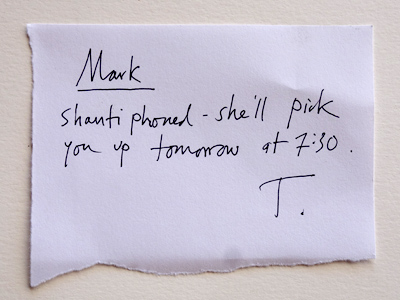 Mark
shanti phoned - she'll pick
you up tomorrow at 7:30.
T.